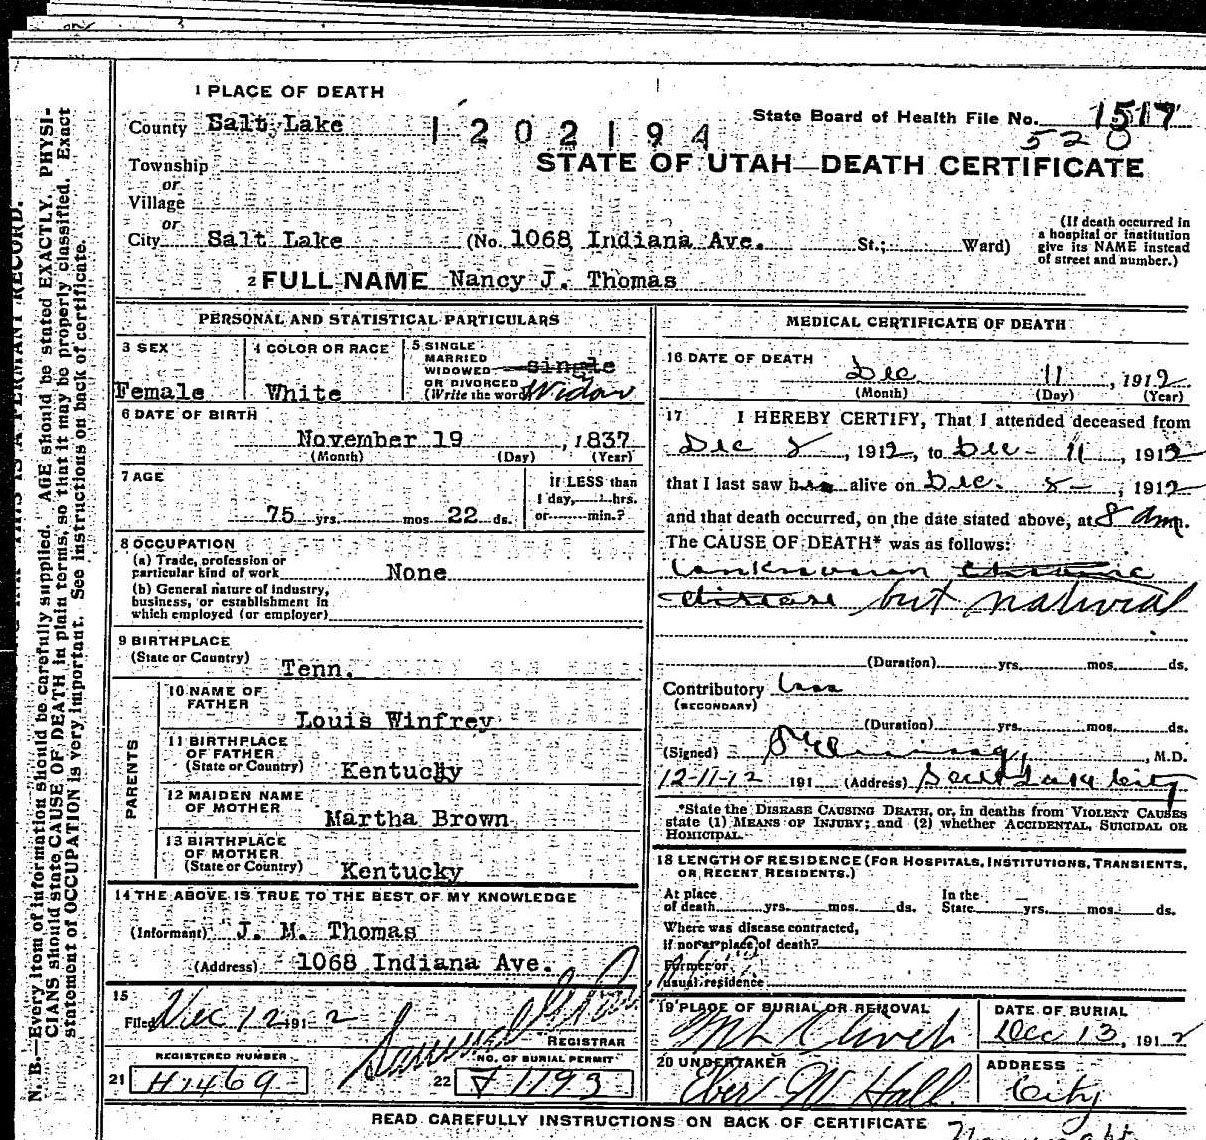 1 PLACE OF DEATH
County Salt Lake
1202194
State Board of Health File No. 1517
520
STATE OF UTAH—DEATH CERTIFICATE
Township
or
Village
or
City Salt Lake (No. 1068 Indiana Ave. St.; Ward)
(If death occurred in
a hospital or institution
give its NAME instead
of street and number.)
2 FULL NAME Nancy J. Thomas
PERSONAL AND STATISTICAL PARTICULARS
3 SEX
Female
4 COLOR OR RACE
White
5 SINGLE
MARRIED
WIDOWED single
OR DIVORCED
(Write the word) Widow
6 DATE OF BIRTH
November 19, 1837
(Month) (Day) (Year)
7 AGE
75 yrs. mos. 22 ds.
If LESS than
1 day, hrs.
or min.?
8 OCCUPATION
(a) Trade, profession or
particular kind of work None
(b) General nature of industry,
business, or establishment in
which employed (or employer)
9 BIRTHPLACE
(State or Country) Tenn.
PARENTS
10 NAME OF
FATHER Louis Winfrey
11 BIRTHPLACE
OF FATHER
(State or Country) Kentucky
12 MAIDEN NAME
OF MOTHER Martha Brown
13 BIRTHPLACE
OF MOTHER
(State or Country) Kentucky
14 THE ABOVE IS TRUE TO THE BEST OF MY KNOWLEDGE
(Informant) J. M. Thomas
(Address) 1068 Indiana Ave.
15
Filed Dec 12 1912
REGISTRAR
REGISTERED NUMBER
21 H1469
NO. OF BURIAL PERMIT
22 1793
MEDICAL CERTIFICATE OF DEATH
16 DATE OF DEATH
Dec 11, 1912
(Month) (Day) (Year)
17 I HEREBY CERTIFY, That I attended deceased from
Dec 8, 1912, to Dec - 11, 1912
that I last saw her alive on Dec. 8 -, 1912
and that death occurred, on the date stated above, at 8 am.
The CAUSE OF DEATH* was as follows:
Unknown chronic
disease but natural
(Duration) yrs. mos. ds.
Contributory
(SECONDARY)
(Duration) yrs. mos. ds.
(Signed) , M.D.
12-11-12 191 (Address) Salt Lake City
*State the DISEASE CAUSING DEATH, or, in deaths from VIOLENT CAUSES
state (1) MEANS OF INJURY; and (2) whether ACCIDENTAL, SUICIDAL OR
HOMICIDAL.
18 LENGTH OF RESIDENCE (FOR HOSPITALS, INSTITUTIONS, TRANSIENTS,
OR RECENT RESIDENTS.)
At place
of death yrs. mos. ds.
In the
State yrs. mos. ds.
Where was disease contracted,
if not at place of death?
Former or
usual residence
19 PLACE OF BURIAL OR REMOVAL
DATE OF BURIAL
Dec 13, 1912
20 UNDERTAKER
Eber W Hall
ADDRESS
City
READ CAREFULLY INSTRUCTIONS ON BACK OF CERTIFICATE
THIS IS A PERMANT RECORD.
N. B.—Every item of information should be carefully supplied. AGE should be stated EXACTLY. PHYSI-
CIANS should state CAUSE OF DEATH in plain terms, so that it may be properly classified. Exact
statement of OCCUPATION is very important. See instructions on back of certificate.